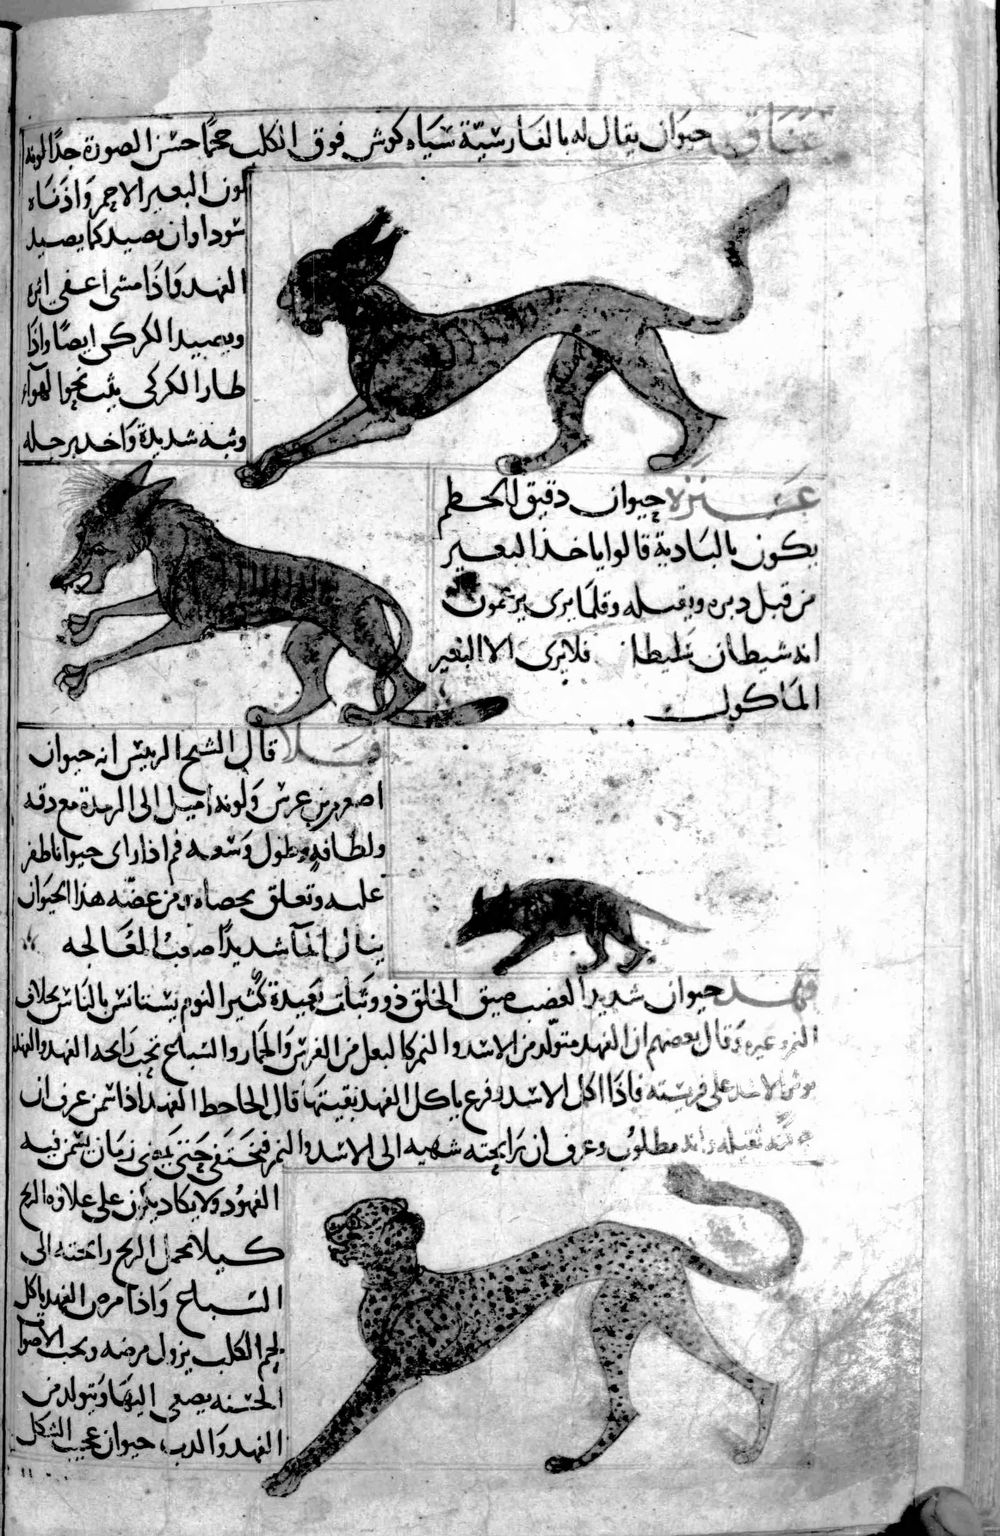 عناق حيوان يقال له بالفارسية سياه كوش فوق الكلب حجما حسن الصورة جدا لونه
لون البعير الاحمر واذناه
سوداوان يصيد كما يصيد
الفهد واذا مشى اعفى اثره
ويصيد الكركي ايضا واذا
طار الكركي يثب نحو الهواء
وثبة شديدة واخذ برجله
عنزة حيوان دقيق الخطم
يكون بالبادية قالوا ياخذ البعير
من قبل دبره ويقتله وقلما يرى يزعمون
انه شيطان فلا يرى الا البعير
الماكول
قال الشيخ الرييس انه حيوان
اصغر من ابن عرس ولونه اميل الى الرمدة مع دقة
ولطافة وطول وسعة فم اذا راى حيوانا طفر
عليه وتعلق بخصاه ومن عضه هذا الحيوان
ينال الما شديدا صعب المعالجه
فهد حيوان شديد الغضب ضيق الخلق ذو وثبات بعيدة كثير النوم يستانس بالناس بخلاف
النمر وغيره وقال بعضهم ان الفهد متولد من الاسد والنمر كالبغل من الفرس والحمار والسباع تحب رايحة الفهد والفهد
الاسد على فريسته فاذا اكل الاسد وفرغ ياكل الفهد بقيتها قال الجاحظ الفهد اذا سمن عرف ان
تقبله وانه مطلوب وعرف ان رايحته شهية الى الاسد والنمر فيختفي حتى زمان يسمن فيه
الفهود ولا يكاد يكون على علاوة الريح
كيلا تحمل الريح رايحته الى
السباع واذا مرض الفهد ياكل
لحم الكلب يزول مرضه ويحب الاصوات
الحسنة يصغي اليها ويتولد من
الفهد والدب حيوان عجيب الشكل